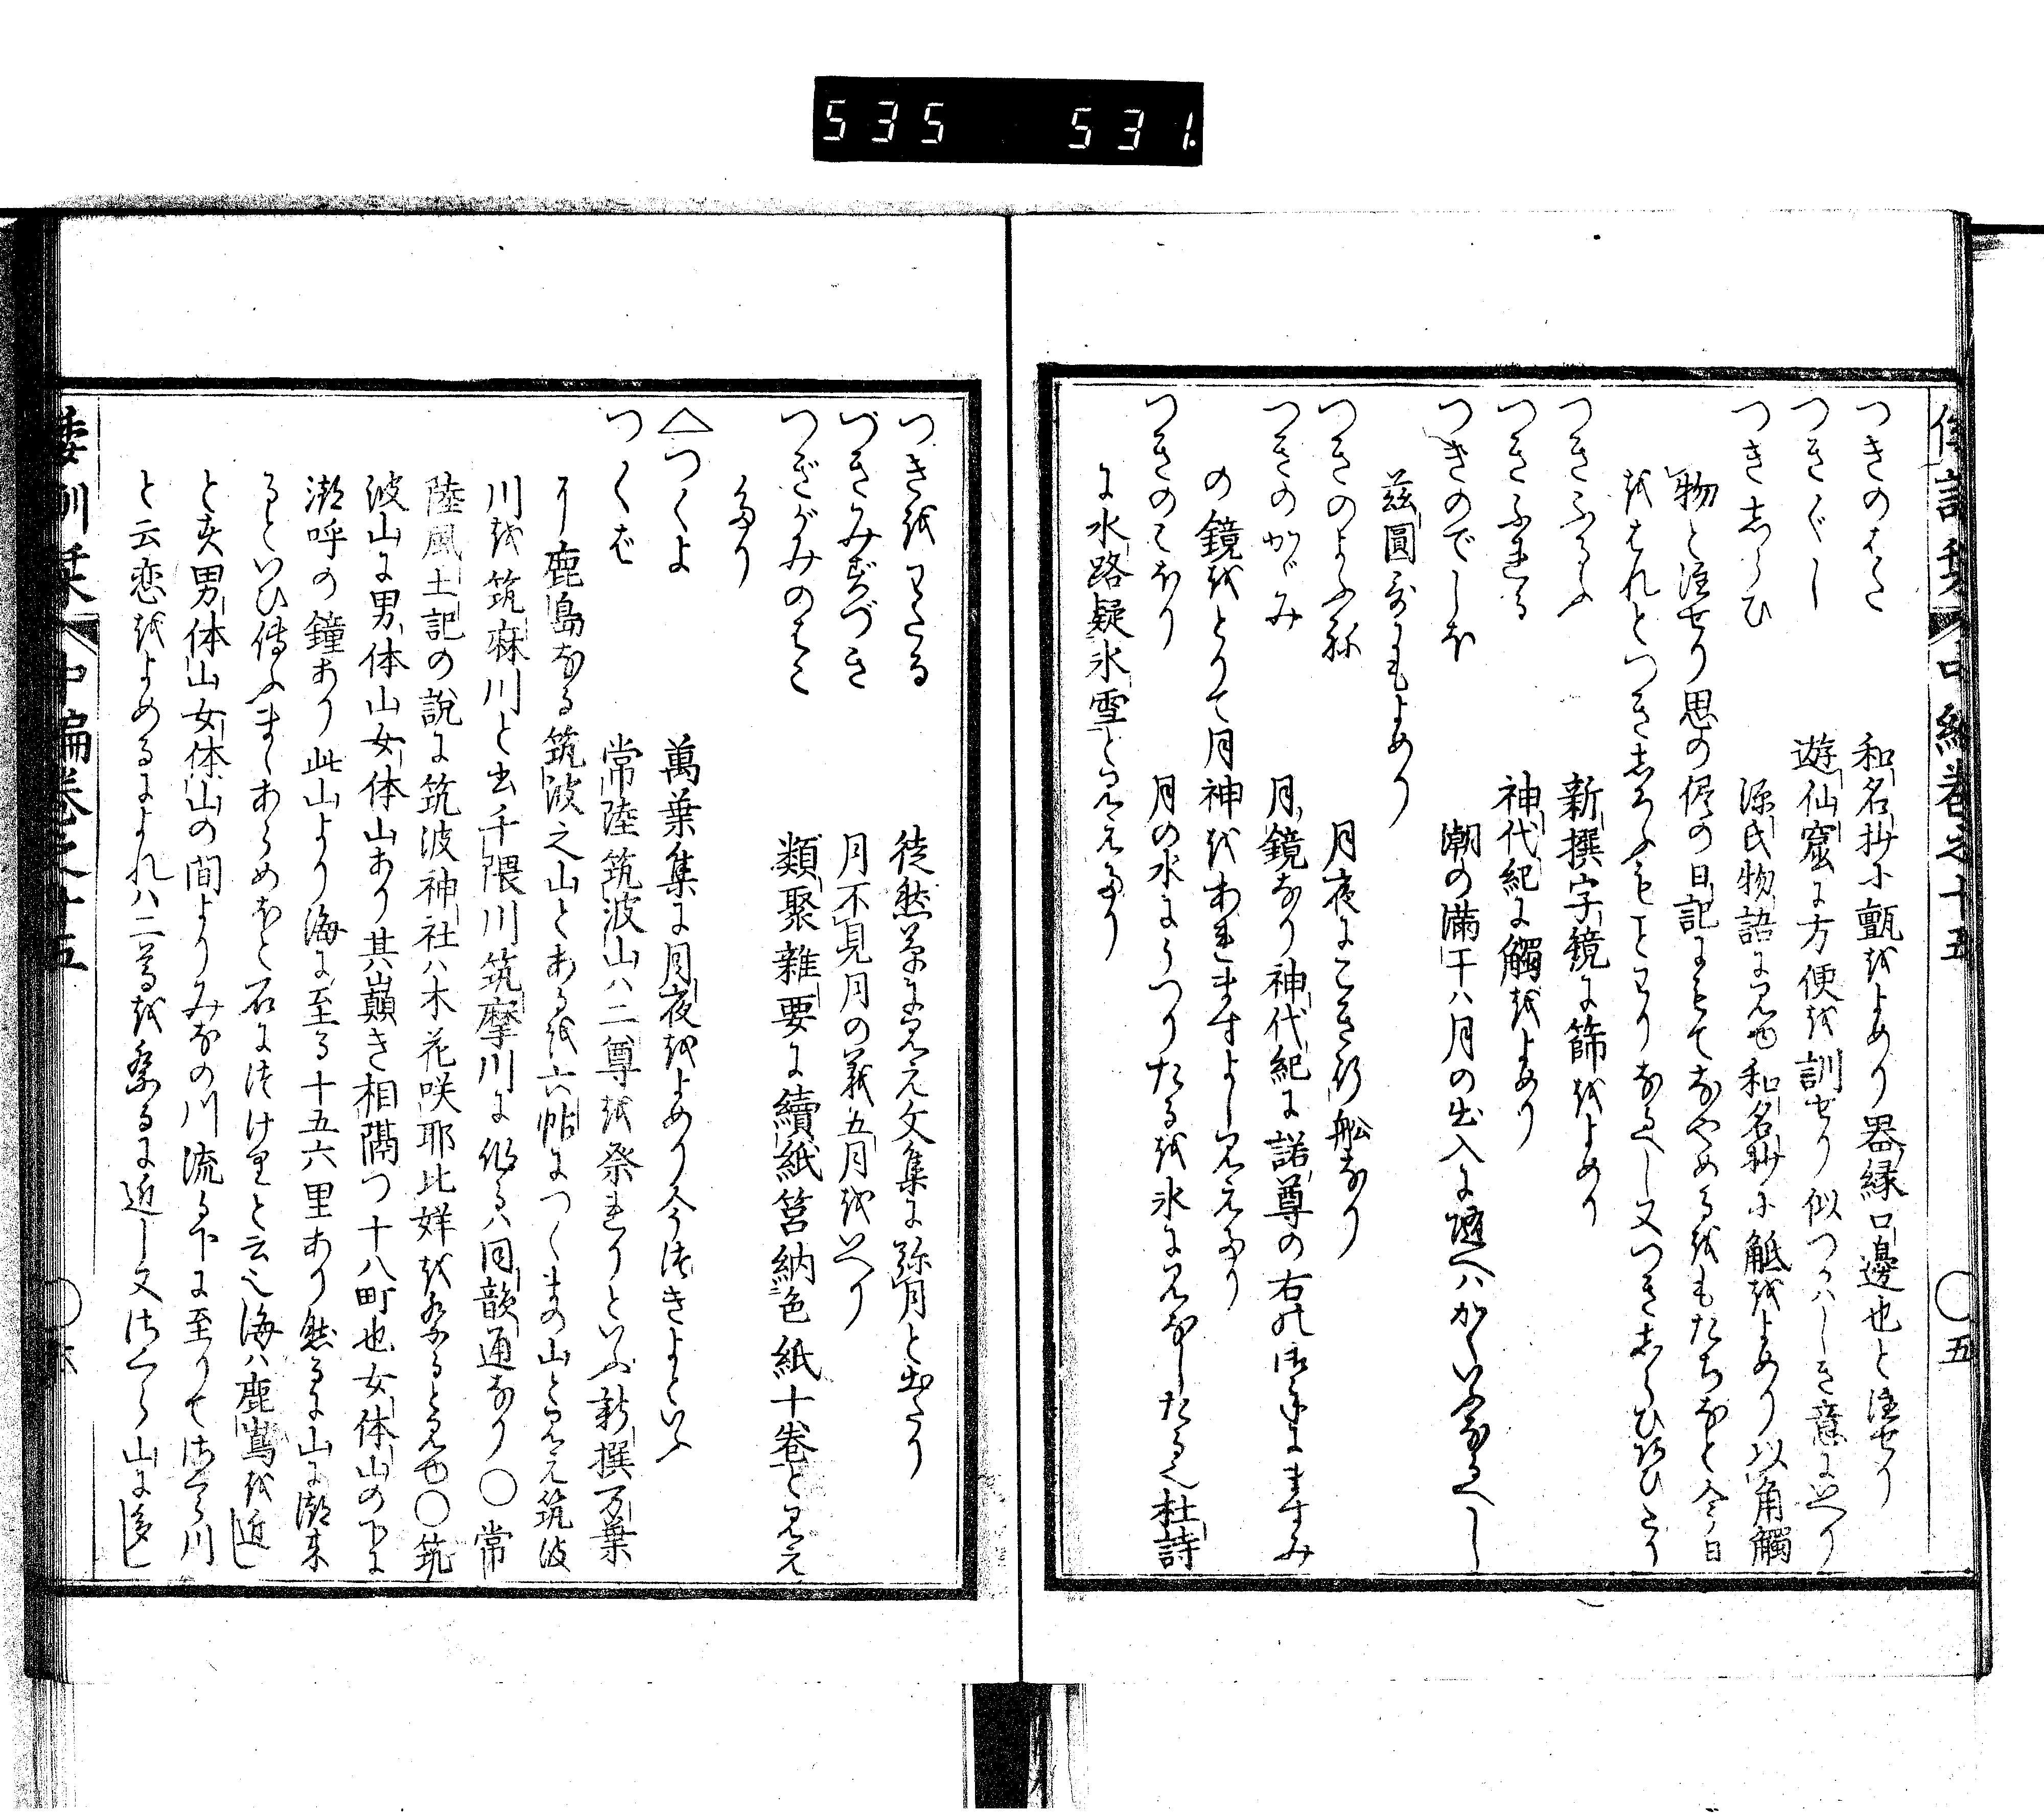 535 531.
つきのはた 和名抄に甑をよめり器縁口邊也と注せり
つきぐし 遊仙窟に方便を訓せり似つかハしき意にいへり
つきしらひ 源氏物語に見ゆ和名抄に觝をよめり以角觸
物と注せり思の侭の日記にもてなやめるをもたちなと今日
新撰字鏡に篩をよめり
つきふれる 神代紀に觸をよめり
つきのでしほ 潮の満干ハ月の出入に随へハかくいふなるへし
慈圓哥にもよめり
つきのよふね 月夜にこき行舩なり
つきのかゞみ 月鏡なり神代紀に諾尊の右の御手にますみ
の鏡をとりて月神をあれますよし見えたり
つきのこほり 月の水にうつりたるを氷に見なしたる也杜詩
に水路疑氷雪と見えたり
つきをわたる 徒然草に見え文集に弥月と出たり
づきみづづき 月不見月の義五月をいへり
つぎがみのはこ 類聚雜要に續紙筥納色紙十巻と見え
たり
△つくよ 萬葉集に月夜をよめり今つきよといふ
つくば 常陸筑波山ハ二尊を祭れりといふ新撰万葉
に鹿島なる筑波之山とあるを六帖につくまの山と見え筑波
川を筑麻川と出千隈川筑摩川に作るハ同韻通なり〇常
陸風土記の説に筑波神社ハ木花咲耶比咩を祭ると見ゆ〇筑
波山に男体山女体山あり其巓き相隔つ十八町也女体山の下に
潮呼の鐘あり此山より海に至る十五六里あり然るに山に潮来
るといひ傳ふまくあらめなと石につけりと云也海ハ鹿嶌を近し
と夫男体山女体山の間よりみなの川流る下に至りてさくら川
と云恋をよめるによれハ二尊を祭るに近し又さくら山に多し
倭訓栞 中編巻之十五 〇五
倭訓栞 中編巻之十五 〇六